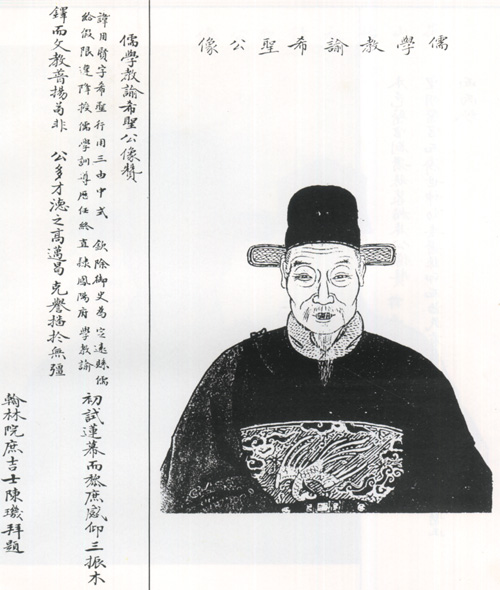 儒學教諭希聖公像
儒學教諭希聖公像贊
諱用賢字希聖行用三由中式 欽除御史為定遠縣儒
給假限違降授儒學訓導歷任終直隸鳳陽府 學教諭
初試蓮幕而旅庶感仰三振木
鐸而文教普揚苟非 公多才德之高邁曷克譽播於無疆
翰林院庶吉士陳璣拜題